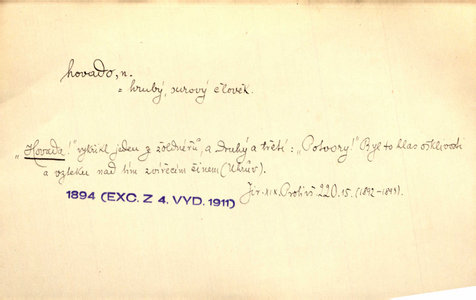 hovado, n.
= hrubý, surový člověk.
„Hovada!" vykřikl jeden z žoldnéřů, a druhý a třetí: „Potvory!" Byl to hlas ošklivosti
a vzteku nad tím zvířecím činem (Uhrův).
Jir. XIX. Proti vš. 220. 15. (1892-1893).
1894 (EXC. Z 4. VYD. 1911)